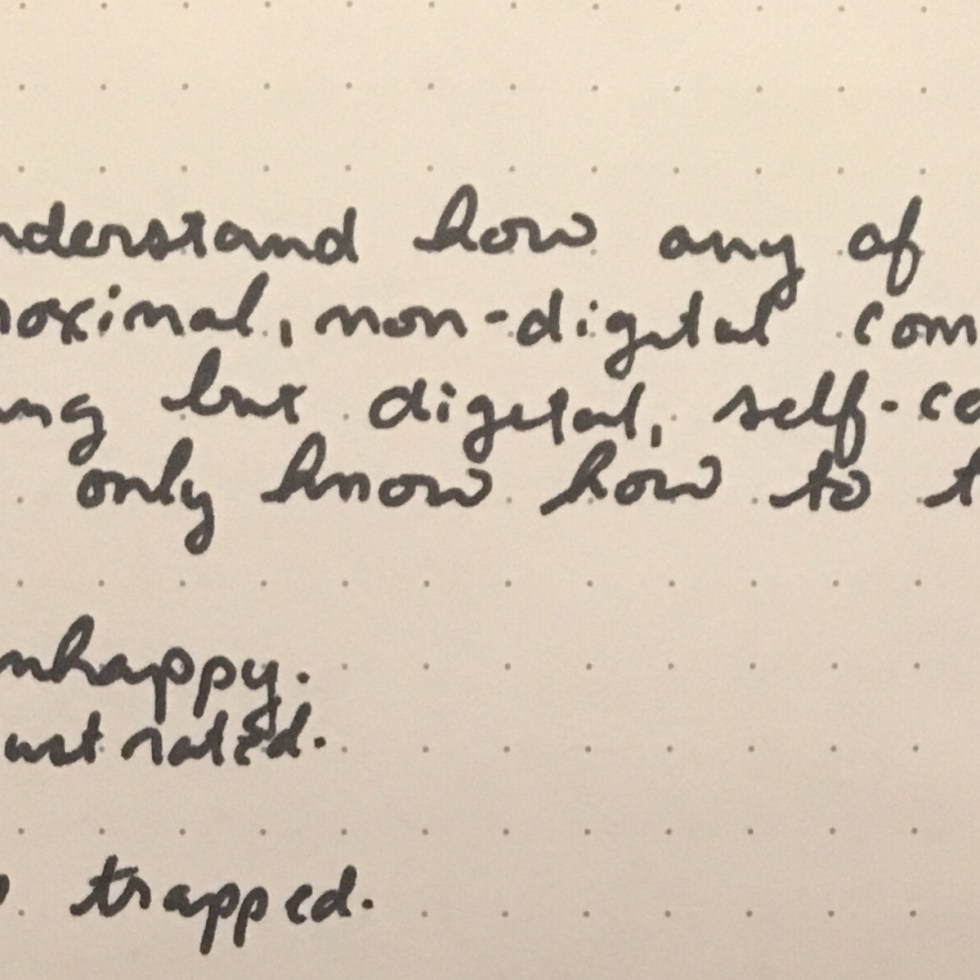 nderstand how any of
oximal, non-digital com
ng but digital, self-co
only know how to t
nhappy.
ustrated.
trapped.